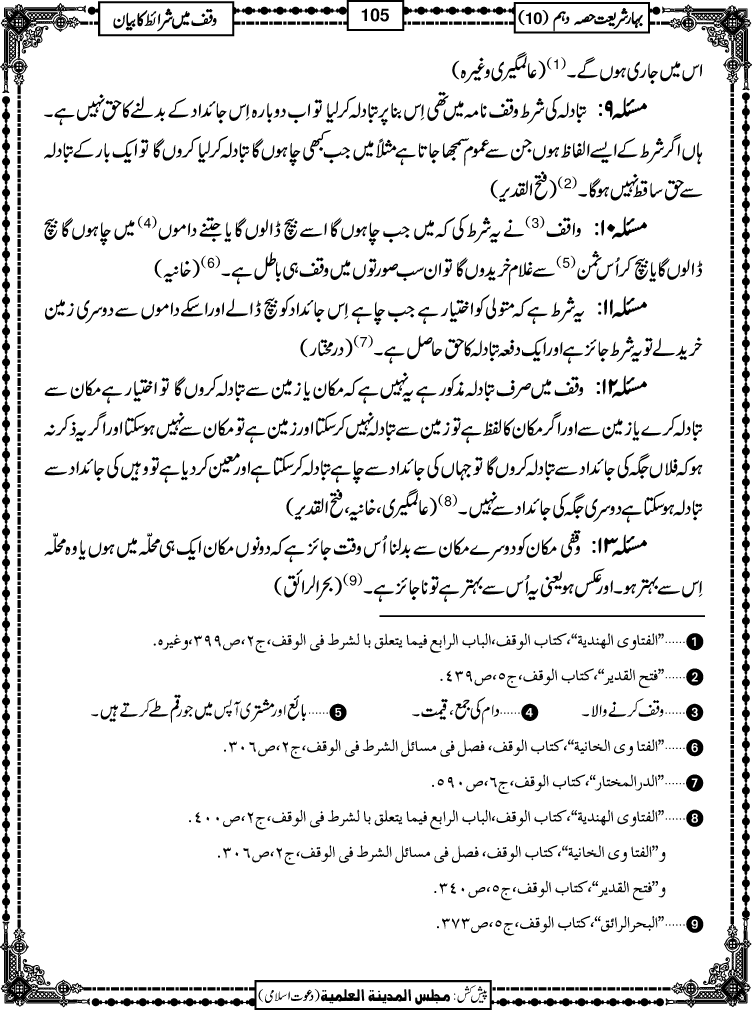 بہار شریعت حصہ دہم (10)
105
وقف میں شرائط کا بیان
اس میں جاری ہوں گے۔(1) (عالمگیری وغیرہ)
مسئلہ ۹: تبادلہ کی شرط وقف نامہ میں تھی اِس بنا پر تبادلہ کرلیا تو اب دوبارہ اِس جائداد کے بدلنے کا حق نہیں ہے۔
ہاں اگر شرط کے ایسے الفاظ ہوں جن سے عموم سمجھا جاتا ہے مثلاً میں جب کبھی چاہوں گا تبادلہ کرلیا کروں گا تو ایک بار کے تبادلہ
سے حق ساقط نہیں ہوگا۔(2) (فتح القدیر)
مسئلہ ۱۰: واقف(3) نے یہ شرط کی کہ میں جب چاہوں گا اسے بیچ ڈالوں گا یا جتنے داموں(4) میں چاہوں گا بیچ
ڈالوں گا یا بیچ کر اُس ثمن(5) سے غلام خریدوں گا تو ان سب صورتوں میں وقف ہی باطل ہے۔(6) (خانیہ)
مسئلہ ۱۱: یہ شرط ہے کہ متولی کو اختیار ہے جب چاہے اِس جائداد کو بیچ ڈالے اور اسکے داموں سے دوسری زمین
خرید لے تو یہ شرط جائز ہے اور ایک دفعہ تبادلہ کا حق حاصل ہے۔(7) (درمختار)
مسئلہ ۱۲: وقف میں صرف تبادلہ مذکور ہے یہ نہیں ہے کہ مکان یا زمین سے تبادلہ کروں گا تو اختیار ہے مکان سے
تبادلہ کرے یا زمین سے اور اگر مکان کا لفظ ہے تو زمین سے تبادلہ نہیں کرسکتا اور زمین ہے تو مکان سے نہیں ہوسکتا اور اگر یہ ذکر نہ
ہو کہ فلاں جگہ کی جائداد سے تبادلہ کروں گا تو جہاں کی جائداد سے چاہے تبادلہ کرسکتا ہے اور معین کردیا ہے تو وہیں کی جائداد سے
تبادلہ ہوسکتا ہے دوسری جگہ کی جائداد سے نہیں۔(8) (عالمگیری، خانیہ، فتح القدیر)
مسئلہ ۱۳: وقفی مکان کو دوسرے مکان سے بدلنا اُس وقت جائز ہے کہ دونوں مکان ایک ہی محلّہ میں ہوں یا وہ محلّہ
اِس سے بہتر ہو۔ اور عکس ہو یعنی یہ اُس سے بہتر ہے تو ناجائز ہے۔(9) (بحرالرائق)
1......”الفتاوی الهندیة“، کتاب الوقف، الباب الرابع فیما یتعلق بالشرط فی الوقف، ج۲، ص۳۹۹، وغیره.
2......”فتح القدیر“، کتاب الوقف، ج۵، ص۴۳۹.
3......وقف کرنے والا۔ 4......دام کی جمع، قیمت۔ 5......بائع اور مشتری آپس میں جو رقم طے کرتے ہیں۔
6......”الفتاوی الخانیة“، کتاب الوقف، فصل فی مسائل الشرط فی الوقف، ج۲، ص۳۰۶.
7......”الدرالمختار“، کتاب الوقف، ج۶، ص۵۹۰.
8......”الفتاوی الهندیة“، کتاب الوقف، الباب الرابع فیما یتعلق بالشرط فی الوقف، ج۲، ص۴۰۰.
و”الفتاوی الخانیة“، کتاب الوقف، فصل فی مسائل الشرط فی الوقف، ج۲، ص۳۰۶.
و”فتح القدیر“، کتاب الوقف، ج۵، ص۳۴۰.
9......”البحرالرائق“، کتاب الوقف، ج۵، ص۳۷۳.
پیش کش: مجلس المدینة العلمیة (دعوت اسلامی)